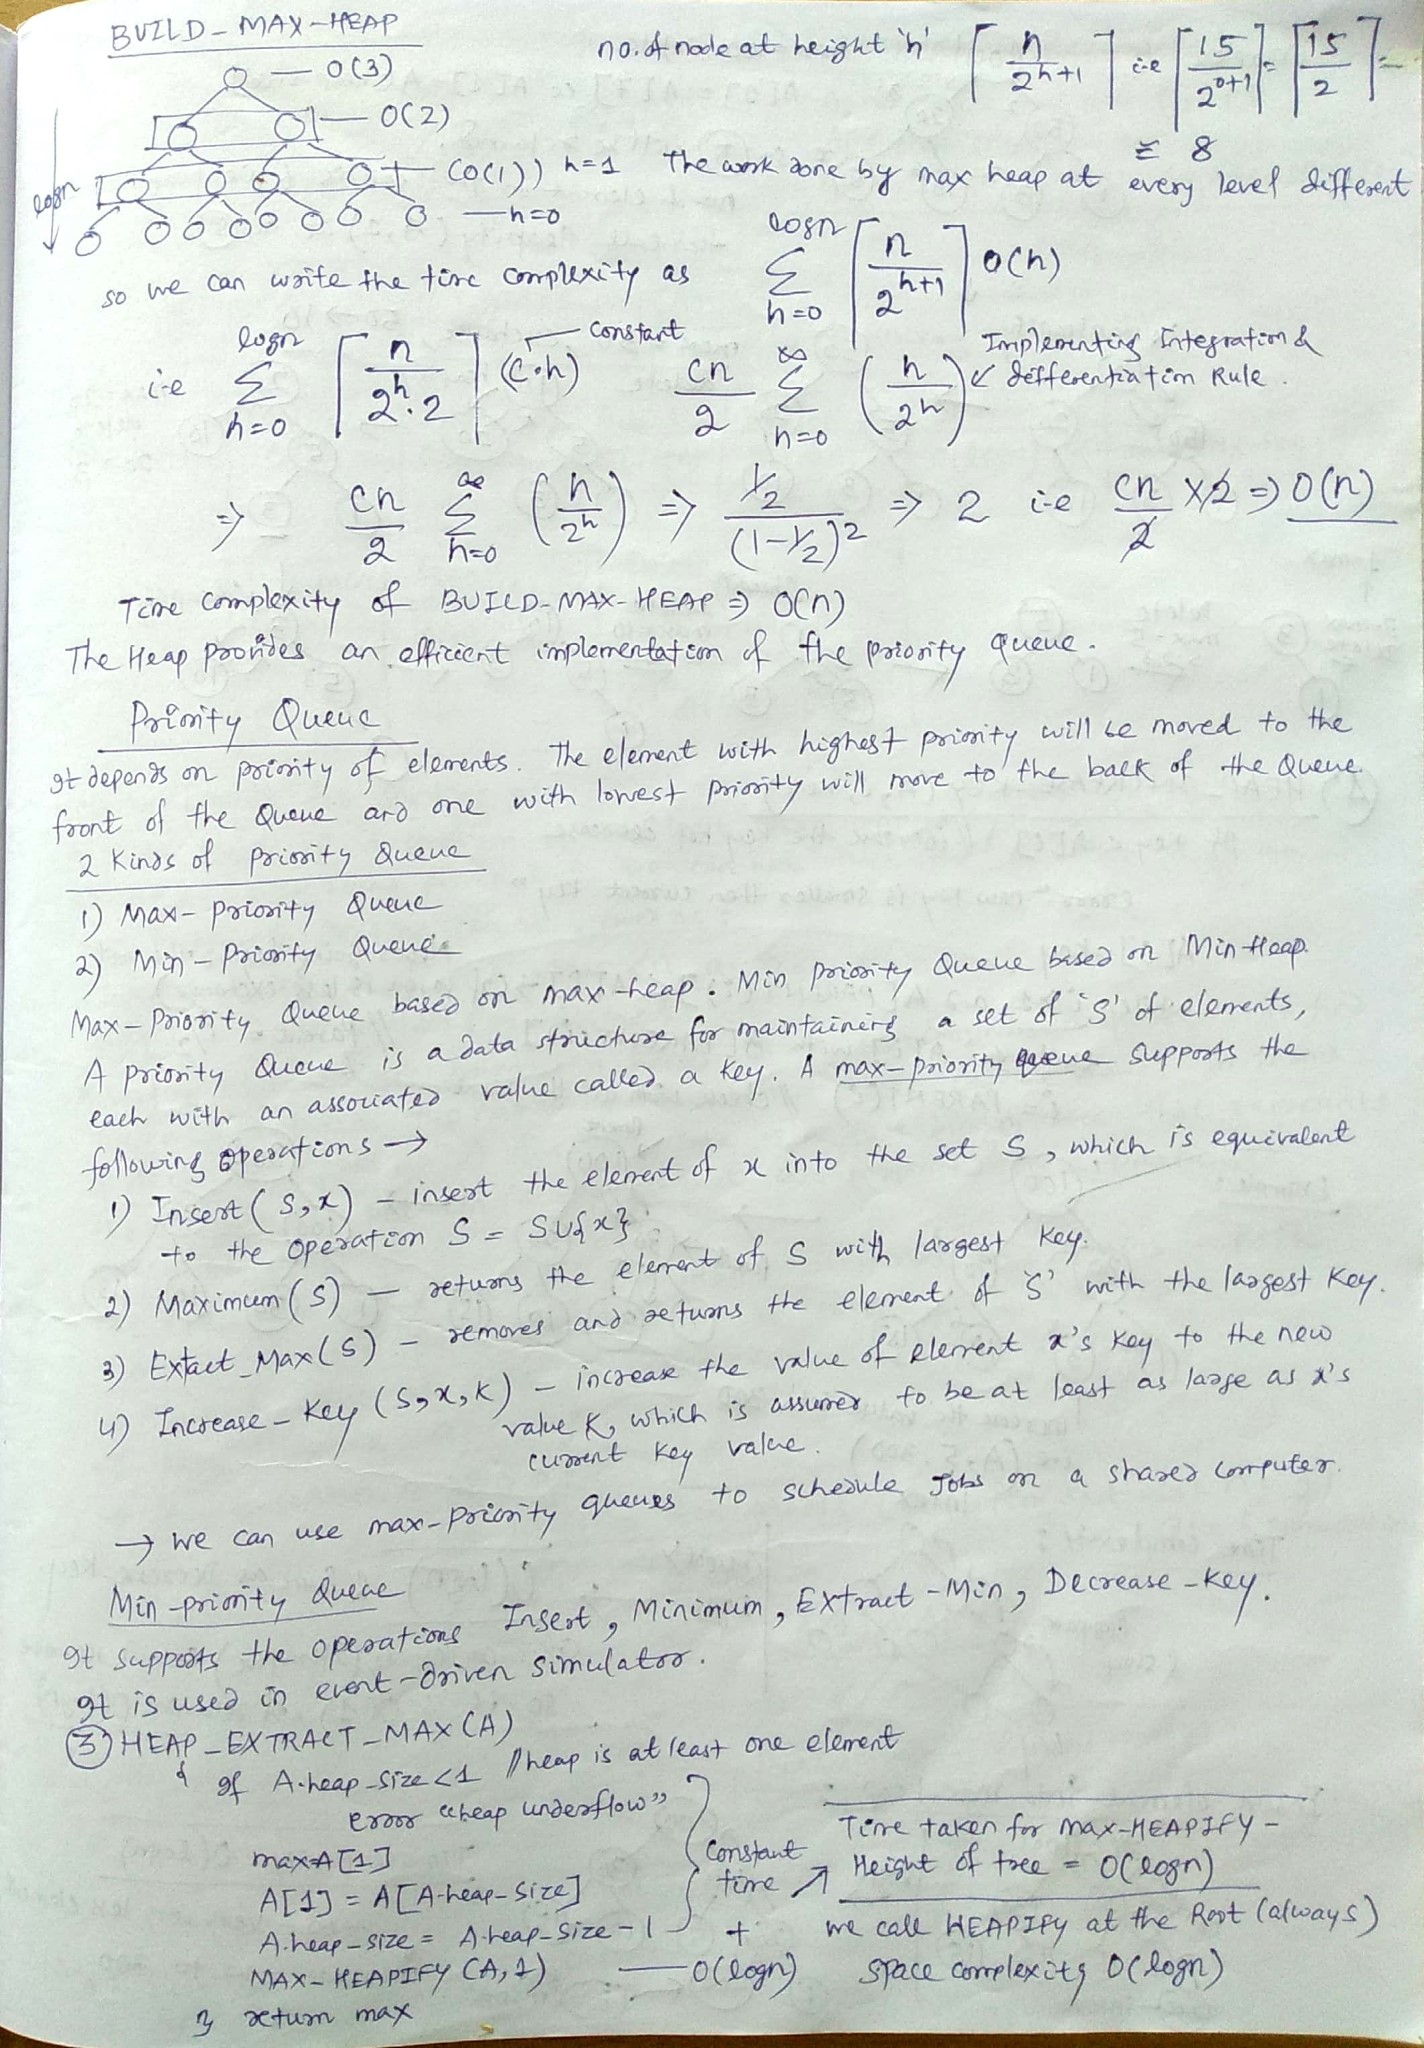 BUILD-MAX-HEAP
no. of node at height 'h' ⌈n/2^(h+1)⌉ i.e ⌈15/2^(0+1)⌉ = ⌈15/2⌉ =
= 8
O(3)
O(2)
(O(1)) h=1 The work done by max heap at every level different
h=0
logn
so we can write the time complexity as Σ_{h=0}^{logn} ⌈n/2^(h+1)⌉ O(h)
i.e Σ_{h=0}^{logn} ⌈n/2^h.2⌉ (c.h) constant cn/2 Σ_{h=0}^{∞} (h/2^h) Implementing Integration &
defferentiation Rule.
⇒ cn/2 Σ_{h=0}^{∞} (h/2^h) ⇒ (1/2)/(1-1/2)^2 ⇒ 2 i.e cn/2 x2 ⇒ O(n)
Time complexity of BUILD-MAX-HEAP ⇒ O(n)
The Heap provides an efficient implementation of the priority queue.
Priority Queue
It depends on priority of elements. The element with highest priority will be moved to the
front of the Queue and one with lowest priority will move to the back of the Queue.
2 Kinds of priority Queue
1) Max-Priority Queue
2) Min-Priority Queue
Max-Priority Queue based on max-heap. Min Priority Queue based on Min Heap.
A priority Queue is a data structure for maintaining a set of 'S' of elements,
each with an associated value called a key. A max-priority queue supports the
following operations →
1) Insert(S,x) - insert the element of x into the set S, which is equivalent
to the operation S = SU{x}
2) Maximum(S) - returns the element of S with largest key.
3) Extact_Max(S) - removes and returns the element of 'S' with the largest key.
4) Increase-Key (S,x,K) - increase the value of element x's key to the new
value K, which is assumed to be at least as large as x's
current key value.
→ we can use max-Priority queues to schedule Jobs on a shared computer.
Min-priority Queue
It supports the operations Insert, Minimum, Extract-Min, Decrease-Key.
It is used in event-driven simulator.
③ HEAP_EXTRACT_MAX(A)
{ If A.heap_size<1 //heap is at least one element
error "heap underflow"
max=A[1]
A[1] = A[A-heap-size]
A.heap_size = A-heap_size-1
MAX-HEAPIFY (A,1) — O(logn)
} return max
constant
time
+
Time taken for max-HEAPIFY -
Height of tree = O(logn)
we call HEAPIFY at the Root (always)
space complexity O(logn)